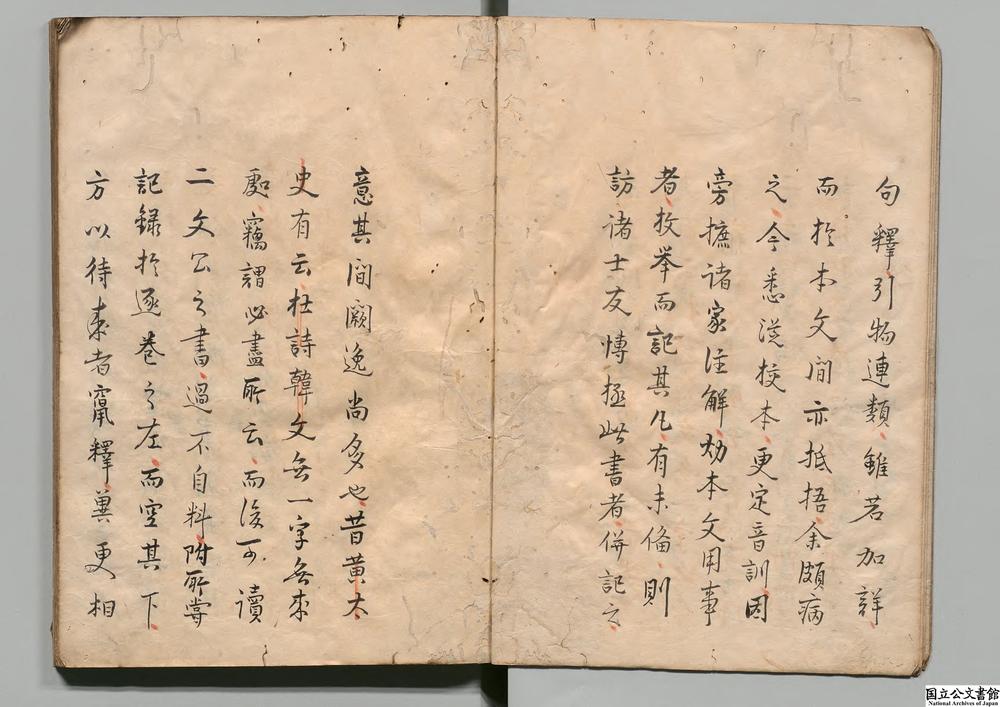 句釋引物連類雖若加詳
而於本文間亦抵捂余頗病
之今悉從挍本更定音訓因
旁摭諸家注解劾本文用事
者枚举而記其凡有未備則
訪諸士友慱極此書者併記之
意其間闕逸尚多也昔黄太
史有云杜詩韓文無一字無来
處竊謂必盡所云而後可讀
二文公之書過不自料附所嘗
記録於逐巻之左而空其下
方以待来者竄釋兾更相
国立公文書館
National Archives of Japan